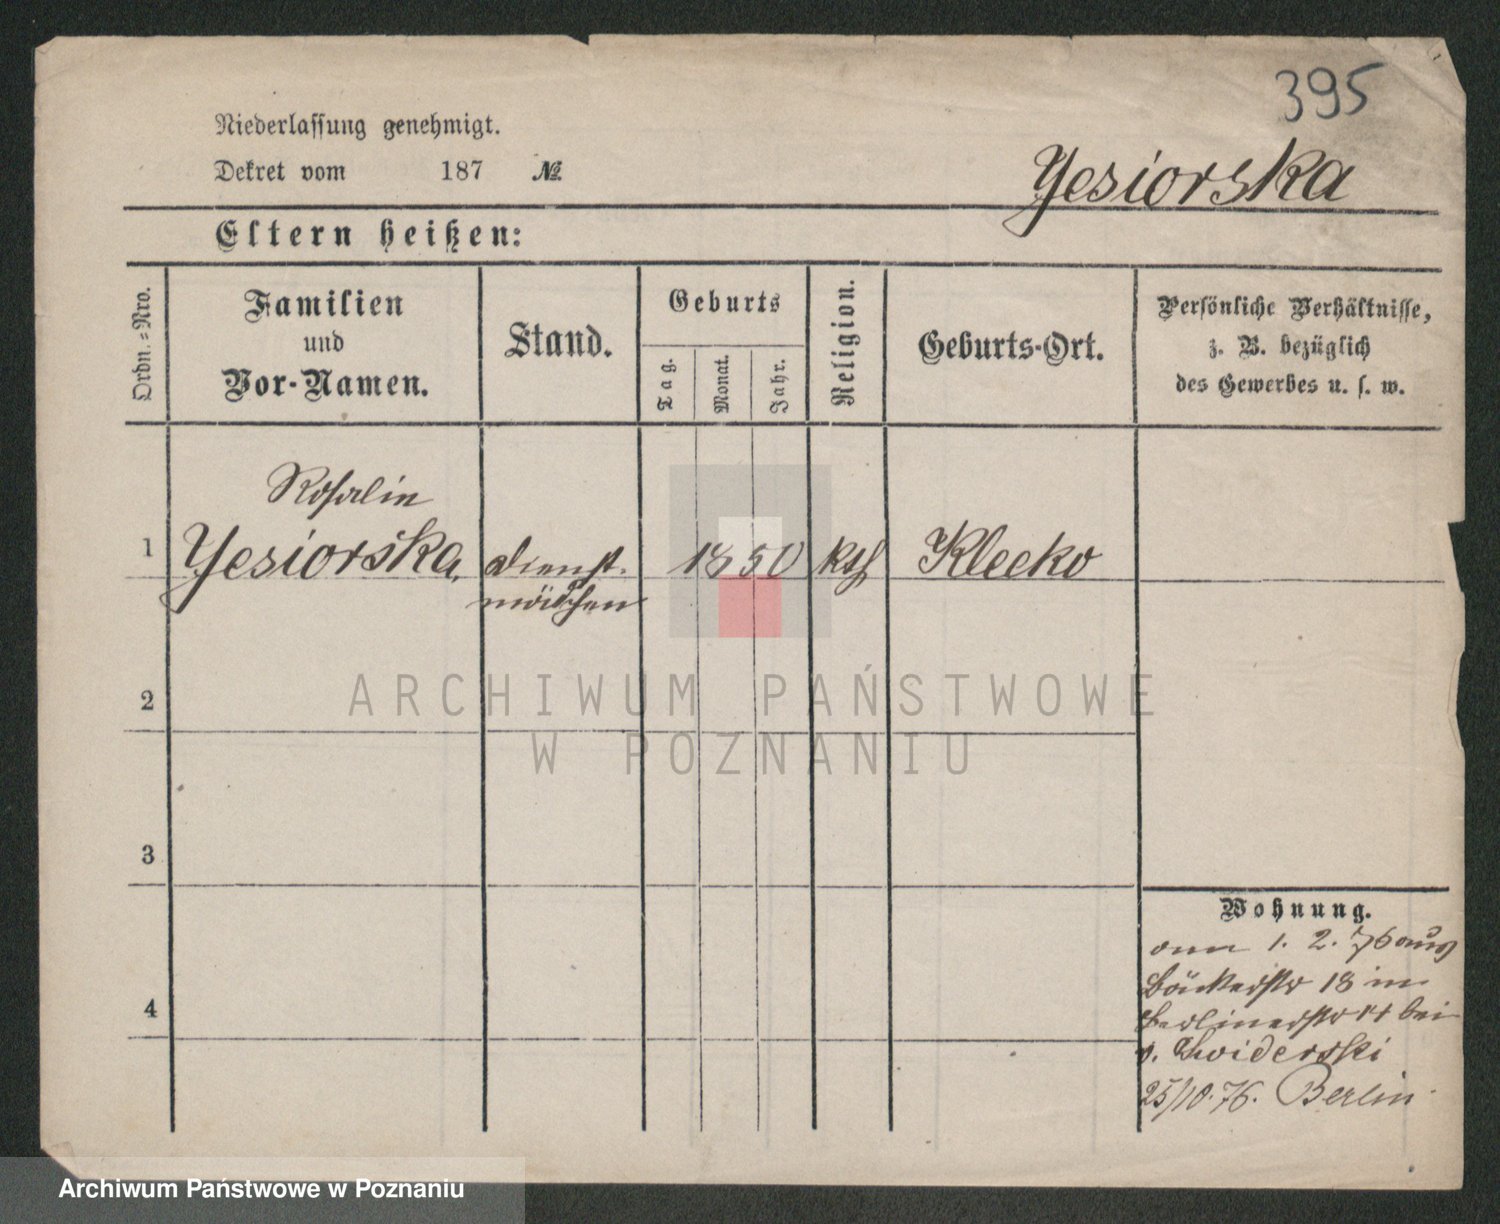 395
Niederlassung genehmigt.
Dekret vom 187 №
Yesiorska
Eltern heißen:
Ordn.-Nro.
Familien
und
Vor-Namen.
Stand.
Geburts
Tag.
Monat.
Jahr.
Religion.
Geburts-Ort.
Persönliche Verhältnisse,
z. B. bezüglich
des Gewerbes u. s. w.
Rosalie
1 Yesiorska, Dienst- 1850 kth Klecko
mädchen
2
3
4
Wohnung.
1. 2. 76 aus
Bäckerstr 18 in
Berlinerstr bei
v. Swiderski
25/10. 76. Berlin
ARCHIWUM PAŃSTWOWE
W POZNANIU
Archiwum Państwowe w Poznaniu